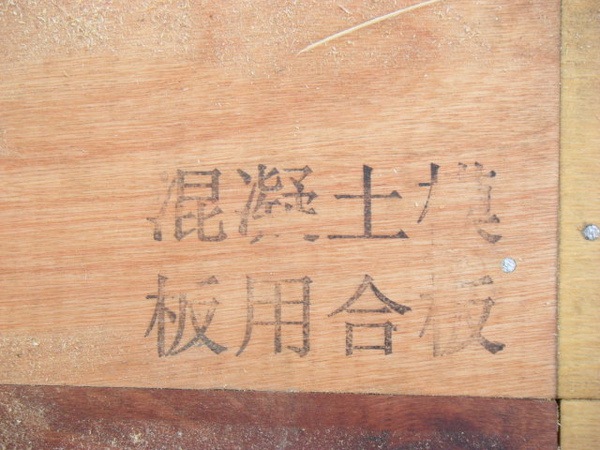 混凝土模
板用合板